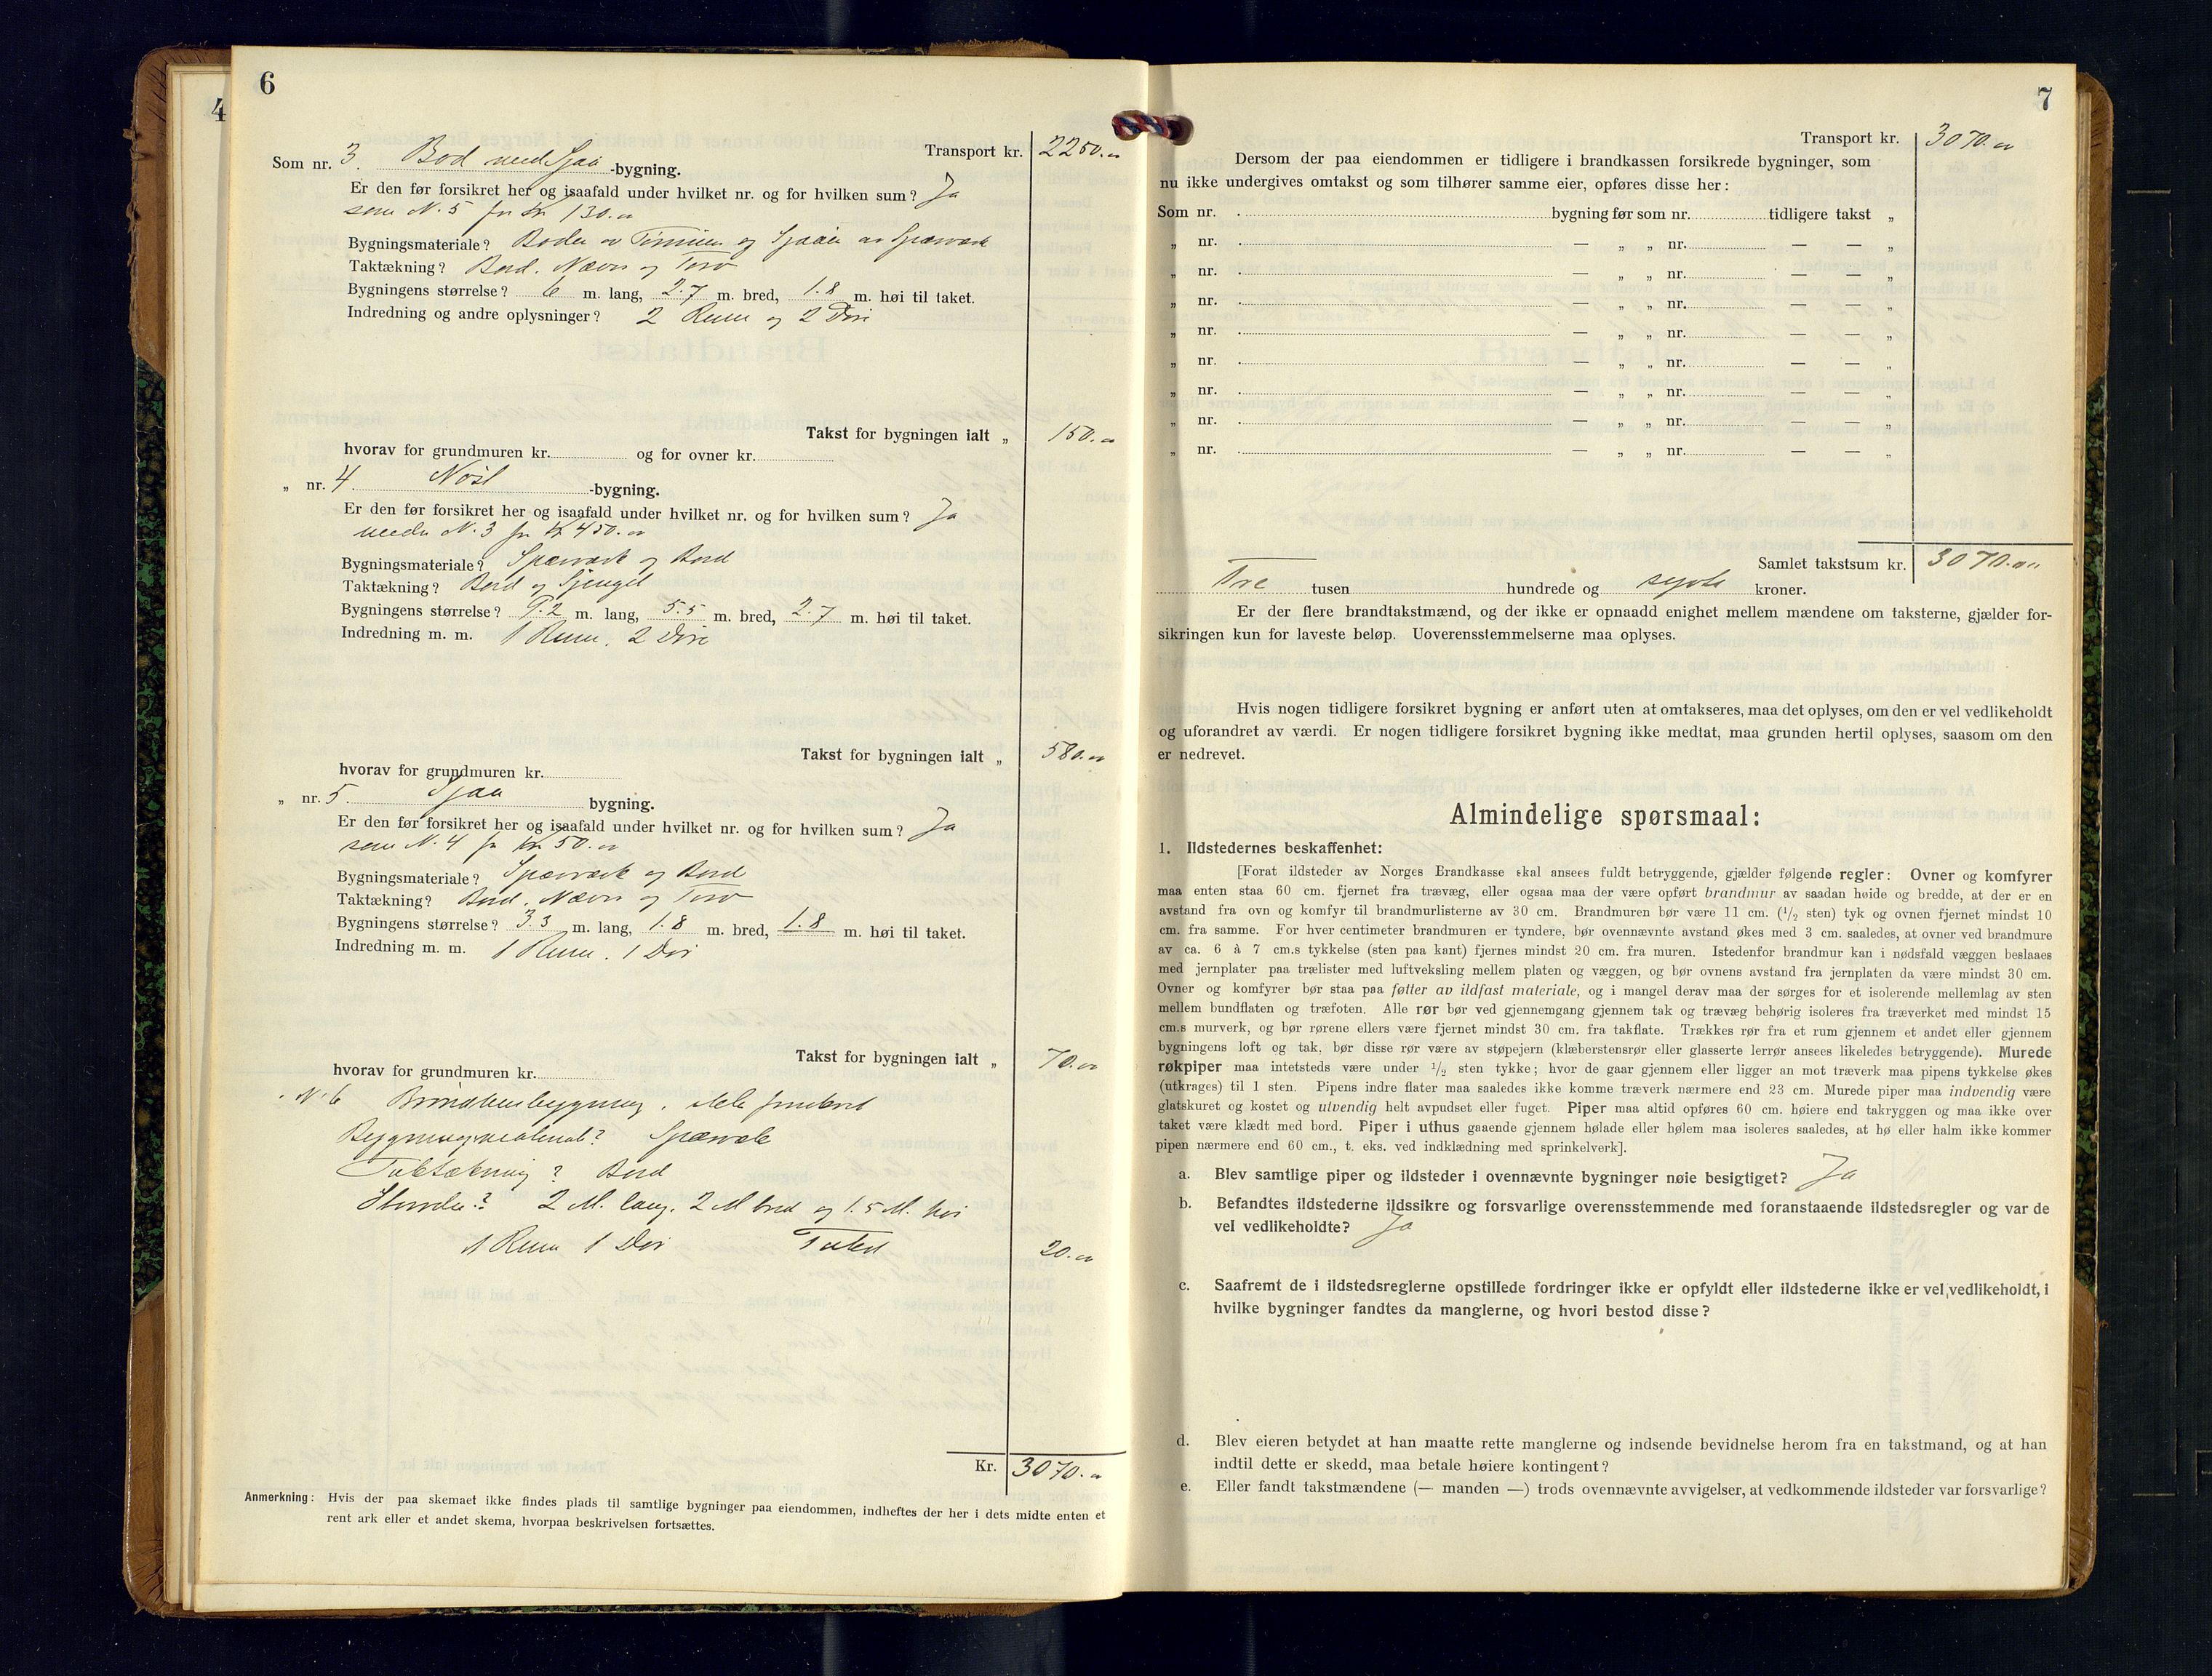 6
Transport kr. 2250.
Som nr. 3. Bod med Sjaa -bygning.
Er den før forsikret her og isaafald under hvilket nr. og for hvilken sum? Ja
som N. 5 for Kr 130.
Bygningsmateriale? Boden av Tømmer og Sjaaen av Spærverk
Taktækning? Bord. Næver og Torv
Bygningens størrelse? 6 m. lang, 2.7 m. bred, 1.8 m. høi til taket.
Indredning og andre oplysninger? 2 Rum og 2 Døre
Takst for bygningen ialt „ 150.
hvorav for grundmuren kr. og for ovner kr.
„ nr. 4. Nøst -bygning.
Er den før forsikret her og isaafald under hvilket nr. og for hvilken sum? Ja
under N. 3 for Kr 450.
Bygningsmateriale? Spærverk og Bord
Taktækning? Bord og Sjengel
Bygningens størrelse? 9.2 m. lang, 5.5 m. bred, 2.7 m. høi til taket.
Indredning m. m. 1 Rum. 2 Døre
Takst for bygningen ialt „ 580.
hvorav for grundmuren kr.
„ nr. 5. Sjaa bygning.
Er den før forsikret her og isaafald under hvilket nr. og for hvilken sum? Ja
som N. 4 for Kr 50.
Bygningsmateriale? Spærverk og Bord
Taktækning? Bord. Næver og Torv
Bygningens størrelse? 3.3 m. lang, 1.8 m. bred, 1.8 m. høi til taket.
Indredning m. m. 1 Rum. 1 Dør
Takst for bygningen ialt „ 70.
hvorav for grundmuren kr.
N. 6 Brøndhusbygning.
Bygningsmateriale? Spærverk
Taktækning? Bord
2 M. lang. 2 M bred og 1.5 M. høi
1 Rum 1 Dør 20.
Kr. 3070.
Anmerkning: Hvis der paa skemaet ikke findes plads til samtlige bygninger paa eiendommen, indheftes der her i dets midte enten et
rent ark eller et andet skema, hvorpaa beskrivelsen fortsættes.
4
7
Transport kr. 3070.
Dersom der paa eiendommen er tidligere i brandkassen forsikrede bygninger, som
nu ikke undergives omtakst og som tilhører samme eier, opføres disse her:
Som nr. bygning før som nr. tidligere takst „
„ nr. — „ „ nr. — — „
„ nr. — „ „ nr. — — „
„ nr. — „ „ nr. — — „
„ nr. — „ „ nr. — — „
„ nr. — „ „ nr. — — „
„ nr. — „ „ nr. — — „
„ nr. — „ „ nr. — — „
„ nr. — „ „ nr. — — „
Samlet takstsum kr. 3070.
Tre tusen hundrede og sytti kroner.
Er der flere brandtakstmænd, og der ikke er opnaadd enighet mellem mændene om taksterne, gjælder for-
sikringen kun for laveste beløp. Uoverensstemmelserne maa oplyses.
Hvis nogen tidligere forsikret bygning er anført uten at omtakseres, maa det oplyses, om den er vel vedlikeholdt
og uforandret av værdi. Er nogen tidligere forsikret bygning ikke medtat, maa grunden hertil oplyses, saasom om den
er nedrevet.
Almindelige spørsmaal:
1. Ildstedernes beskaffenhet:
[Forat ildsteder av Norges Brandkasse skal ansees fuldt betryggende, gjælder følgende regler: Ovner og komfyrer
maa enten staa 60 cm. fjernet fra trævæg, eller ogsaa maa der være opført brandmur av saadan høide og bredde, at der er en
avstand fra ovn og komfyr til brandmurlisterne av 30 cm. Brandmuren bør være 11 cm. (1/2 sten) tyk og ovnen fjernet mindst 10
cm. fra samme. For hver centimeter brandmuren er tyndere, bør ovennævnte avstand økes med 3 cm. saaledes, at ovner ved brandmure
av ca. 6 à 7 cm.s tykkelse (sten paa kant) fjernes mindst 20 cm. fra muren. Istedenfor brandmur kan i nødsfald væggen beslaaes
med jernplater paa trælister med luftveksling mellem platen og væggen, og bør ovnens avstand fra jernplaten da være mindst 30 cm.
Ovner og komfyrer bør staa paa føtter av ildfast materiale, og i mangel derav maa der sørges for et isolerende mellemlag av sten
mellem bundflaten og træfoten. Alle rør bør ved gjennemgang gjennem tak og trævæg behørig isoleres fra træverket med mindst 15
cm.s murverk, og bør rørene ellers være fjernet mindst 30 cm. fra takflate. Trækkes rør fra et rum gjennem et andet eller gjennem
bygningens loft og tak, bør disse rør være av støpejern (klæberstensrør eller glasserte lerrør ansees likeledes betryggende). Murede
røkpiper maa intetsteds være under 1/2 sten tykke; hvor de gaar gjennem eller ligger an mot træverk maa pipens tykkelse økes
(utkrages) til 1 sten. Pipens indre flater maa saaledes ikke komme træverk nærmere end 23 cm. Murede piper maa indvendig være
glatskuret og kostet og utvendig helt avpudset eller fuget. Piper maa altid opføres 60 cm. høiere end takryggen og maa ikke over
taket være klædt med bord. Piper i uthus gaaende gjennem hølade eller hølem maa isoleres saaledes, at hø eller halm ikke kommer
pipen nærmere end 60 cm., t. eks. ved indklædning med sprinkelverk].
a. Blev samtlige piper og ildsteder i ovennævnte bygninger nøie besigtiget? Ja
b. Befandtes ildstederne ildssikre og forsvarlige overensstemmende med foranstaaende ildstedsregler og var de
vel vedlikeholdte? Ja
c. Saafremt de i ildstedsreglerne opstillede fordringer ikke er opfyldt eller ildstederne ikke er vel vedlikeholdt, i
hvilke bygninger fandtes da manglerne, og hvori bestod disse?
d. Blev eieren betydet at han maatte rette manglerne og indsende bevidnelse herom fra en takstmand, og at han
indtil dette er skedd, maa betale høiere kontingent?
e. Eller fandt takstmændene (— manden —) trods ovennævnte avvigelser, at vedkommende ildsteder var forsvarlige?